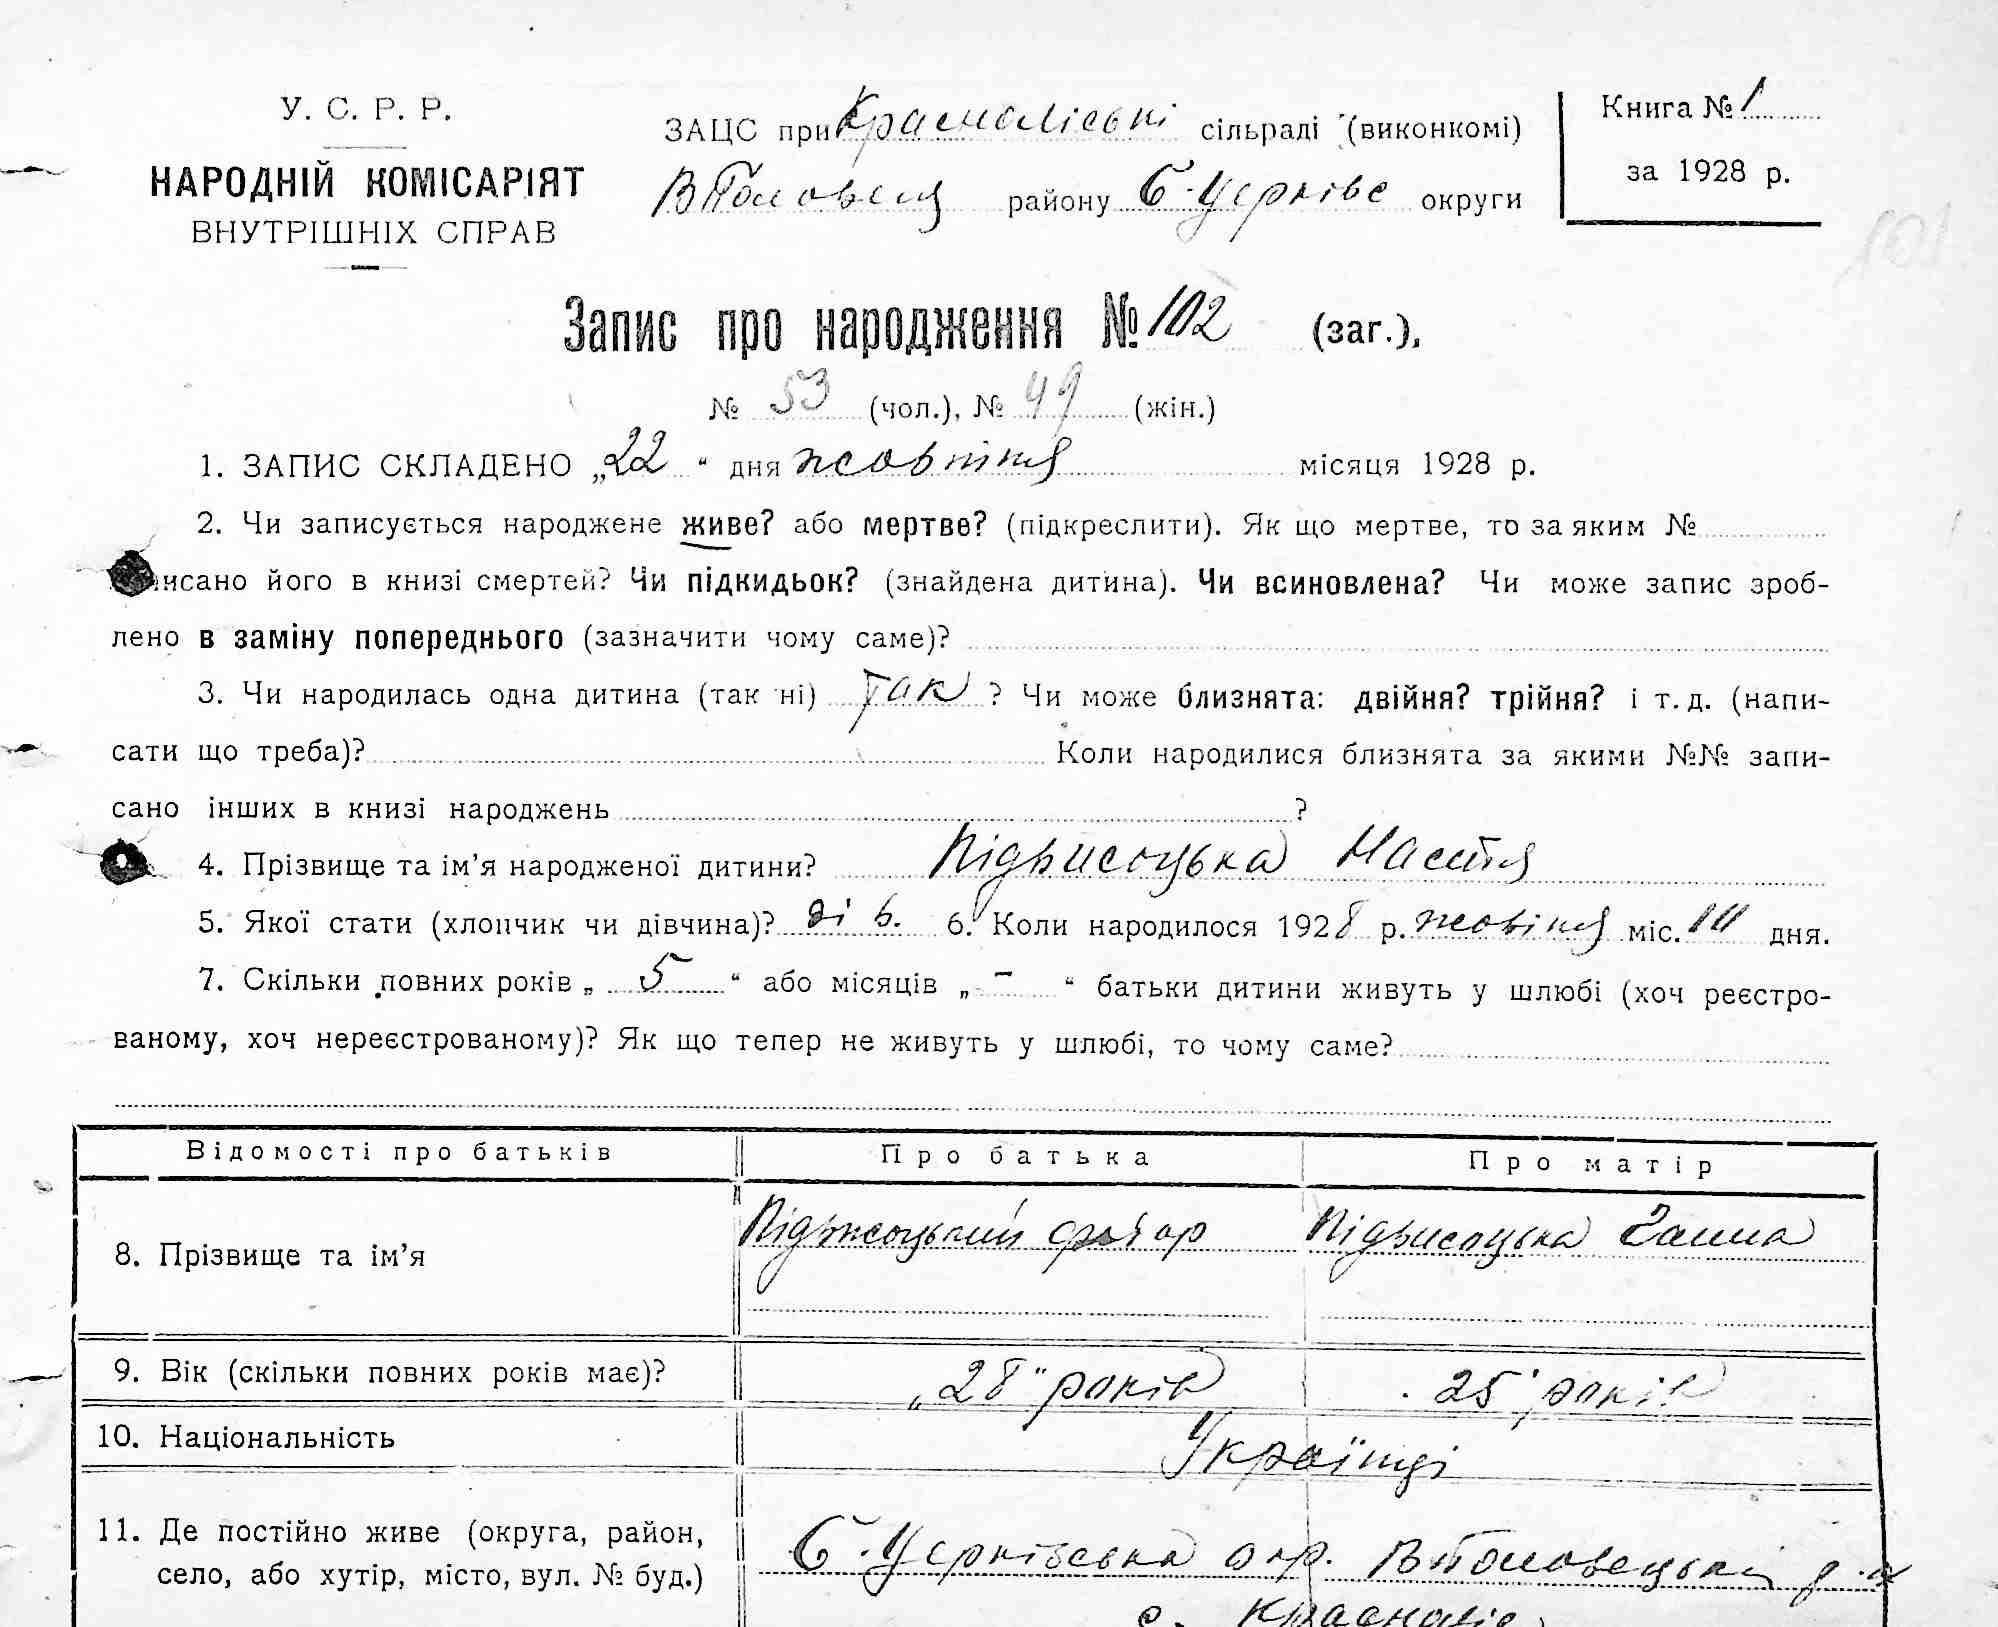 У. С. Р. Р.
НАРОДНІЙ КОМІСАРІЯТ
ВНУТРІШНІХ СПРАВ
ЗАЦС при Красналіські сільраді (виконкомі)
району Б-Церківс округи
Книга № 1
за 1928 р.
Запис про народження № 102 (заг.),
№ 53 (чол.), № 49 (жін.)
1. ЗАПИС СКЛАДЕНО „22“ дня жовтня місяця 1928 р.
2. Чи записується народжене живе? або мертве? (підкреслити). Як що мертве, то за яким №
исано його в книзі смертей? Чи підкидьок? (знайдена дитина). Чи всиновлена? Чи може запис зроб-
лено в заміну попереднього (зазначити чому саме)?
3. Чи народилась одна дитина (так ні) так ? Чи може близнята: двійня? трійня? і т. д. (напи-
сати що треба)? Коли народилися близнята за якими №№ запи-
сано інших в книзі народжень ?
4. Прізвище та ім’я народженої дитини? Підвисоцька Настя
5. Якої стати (хлопчик чи дівчина)? дів. 6. Коли народилося 1928 р. міс. дня.
7. Скільки повних років „ 5 “ або місяців „ - “ батьки дитини живуть у шлюбі (хоч реєстро-
ваному, хоч нереєстрованому)? Як що тепер не живуть у шлюбі, то чому саме?
Відомості про батьків Про батька Про матір
8. Прізвище та ім’я Підвисоцький Підвисоцька Ганна
9. Вік (скільки повних років має)? „28“ років 25 років
10. Національність Українці
11. Де постійно живе (округа, район,
село, або хутір, місто, вул. № буд.)
Б-Церківська окр.
с.